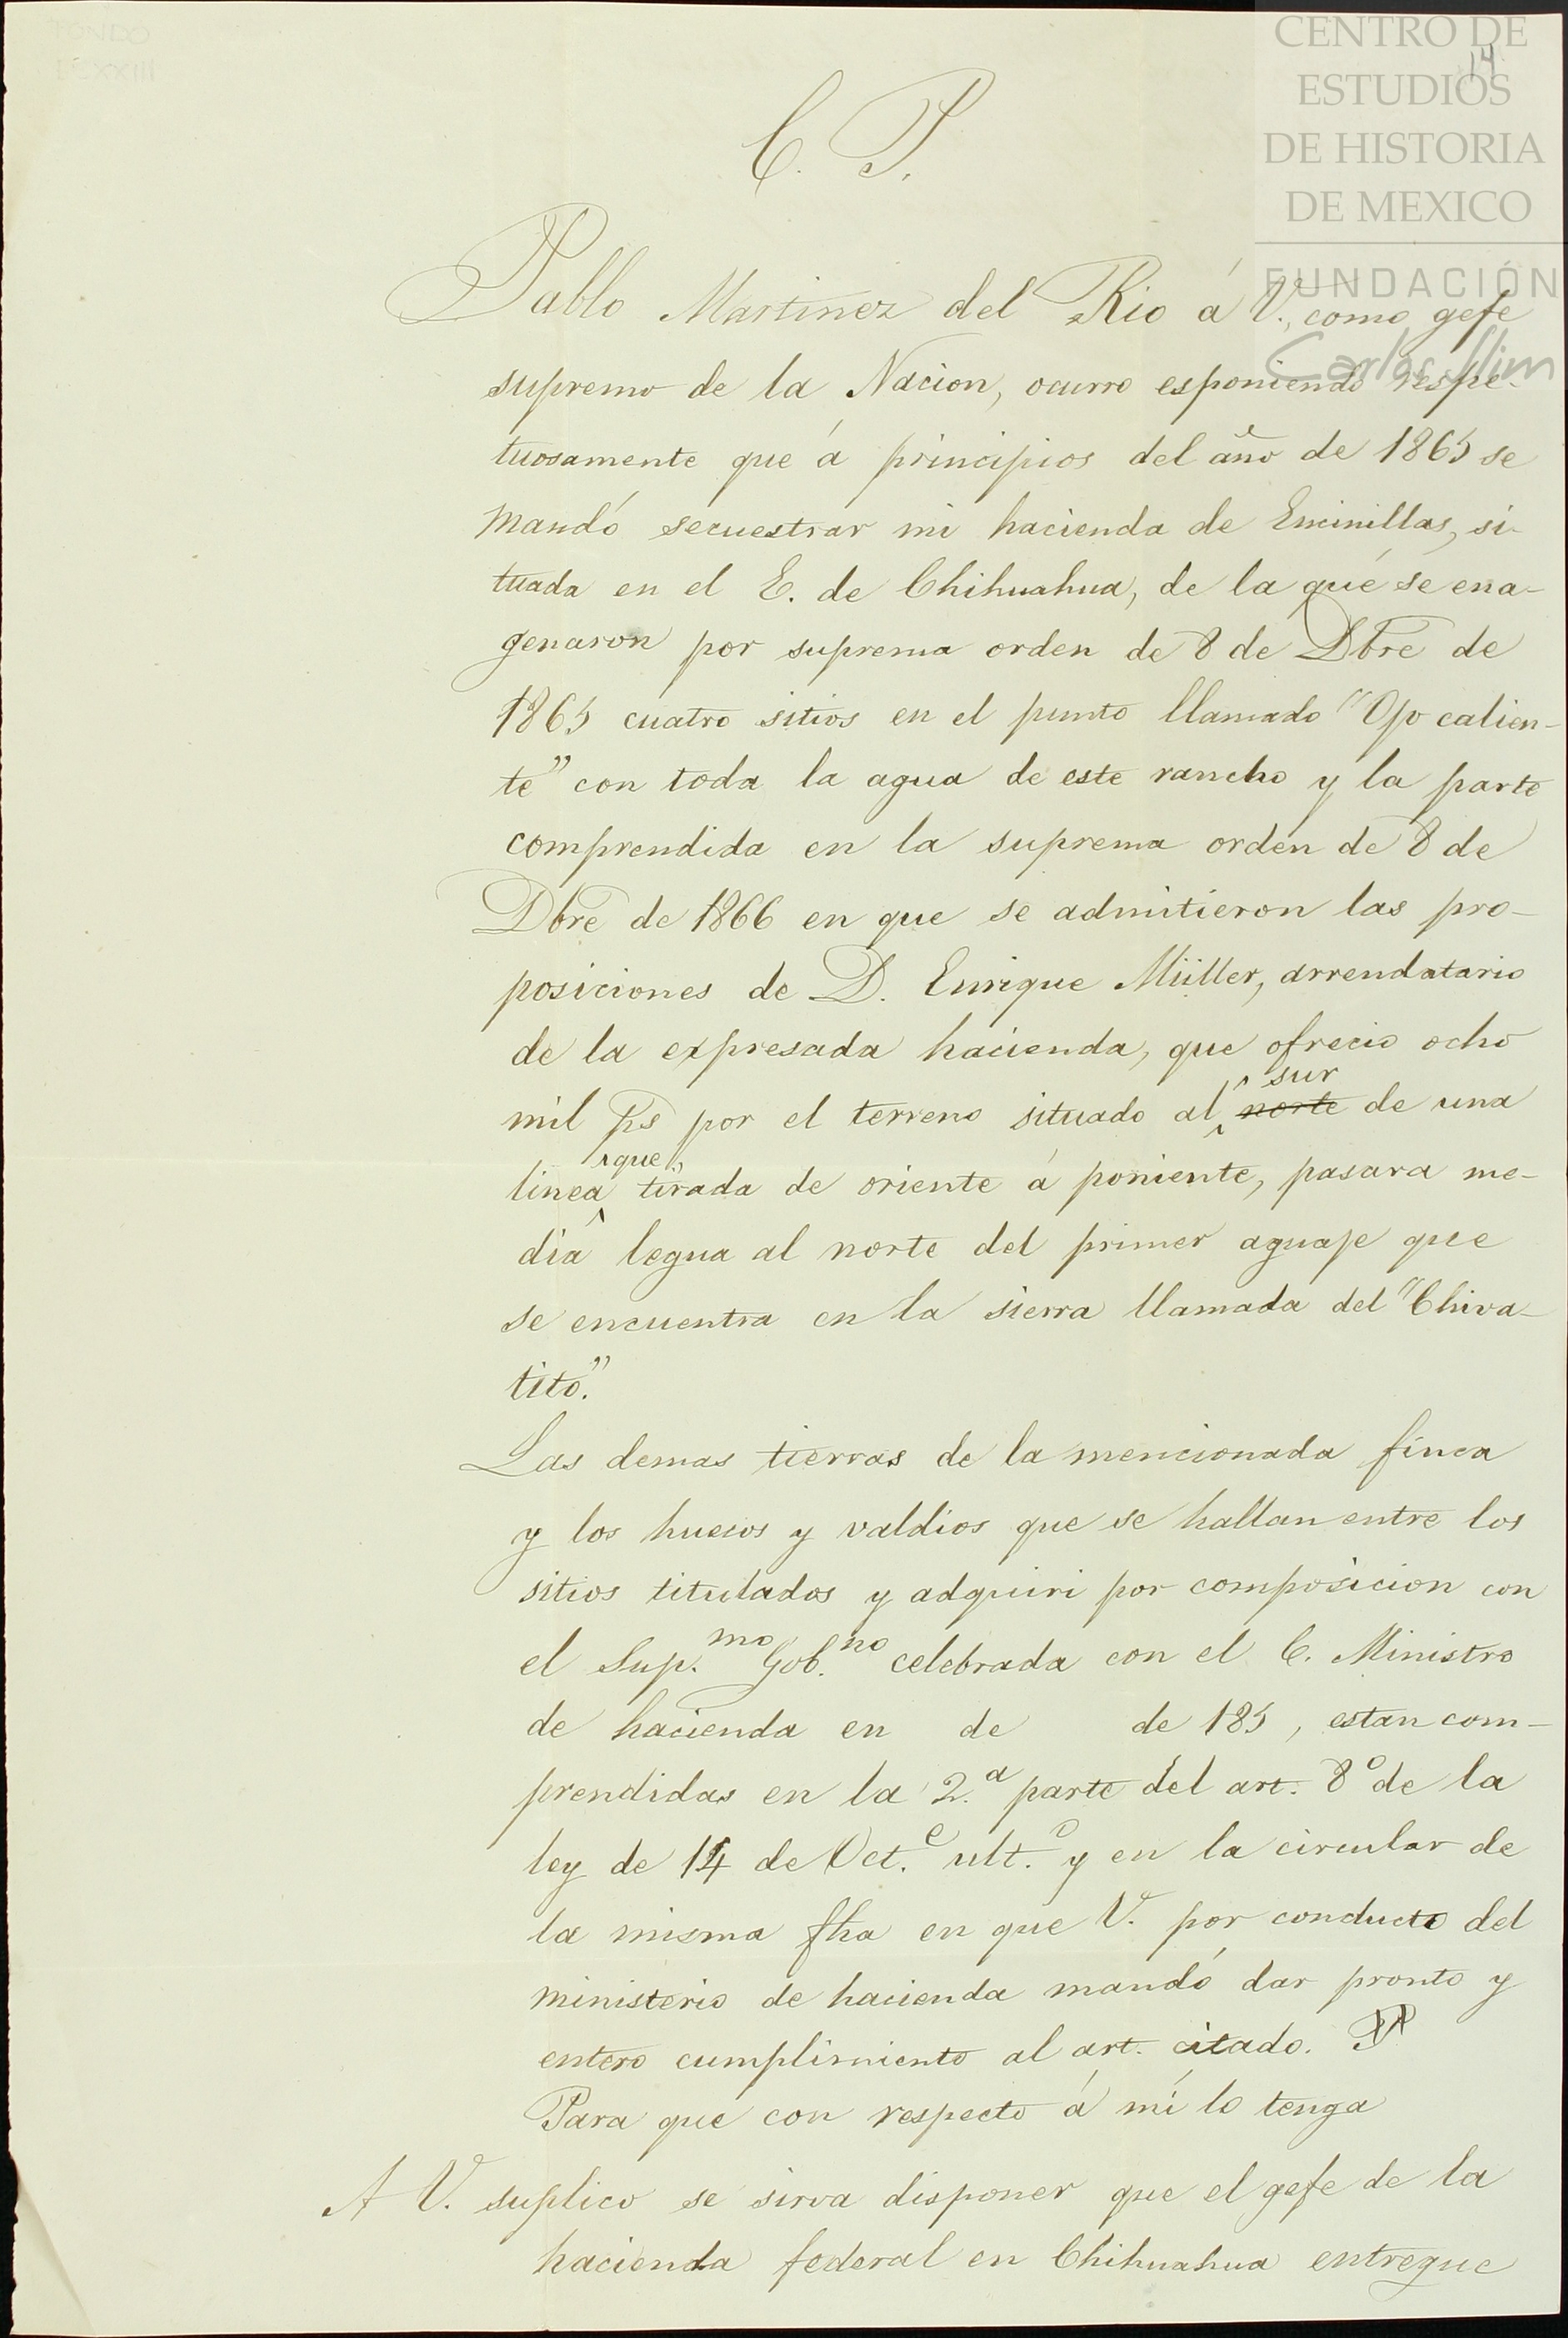 CENTRO DE
ESTUDIOS
DE HISTORIA
DE MEXICO
FUNDACIÓN
Carlos Slim
14
C. P.
Pablo Martinez del Rio á V., como gefe
supremo de la Nacion, ocurro esponiendo respe-
tuosamente que á principios del año de 1865 se
mandó secuestrar mi hacienda de Encinillas, si-
tuada en el E. de Chihuahua, de la que se ena-
genaron por suprema orden de 8 de Dbre de
1865 cuatro sitios en el punto llamado "Ojo calien-
te" con toda la agua de este rancho y la parte
comprendida en la suprema orden de 8 de
Dbre de 1866 en que se admitieron las pro-
posiciones de D. Enrique Müller, arrendatario
de la expresada hacienda, que ofrecio ocho
mil ps por el terreno situado al sur norte de una
linea que, tirada de oriente á poniente, pasara me-
dia legua al norte del primer aguaje que
se encuentra en la sierra llamada del "Chiva-
tito."
Las demas tierras de la mencionada finca
y los huecos y valdios que se hallan entre los
sitios titulados y adquiri por composicion con
el Sup.mo Gob.no celebrada con el C. Ministro
de hacienda en de de 185 , estan com-
prendidas en la 2.a parte del art. 8o de la
ley de 14 de Oct.e ult.o y en la circular de
la misma fha en que V. por conducto del
ministerio de hacienda mandó dar pronto y
entero cumplimiento al art. citado.
Para que con respecto á mí lo tenga
A V. suplico se sirva disponer que el gefe de la
hacienda federal en Chihuahua entregue